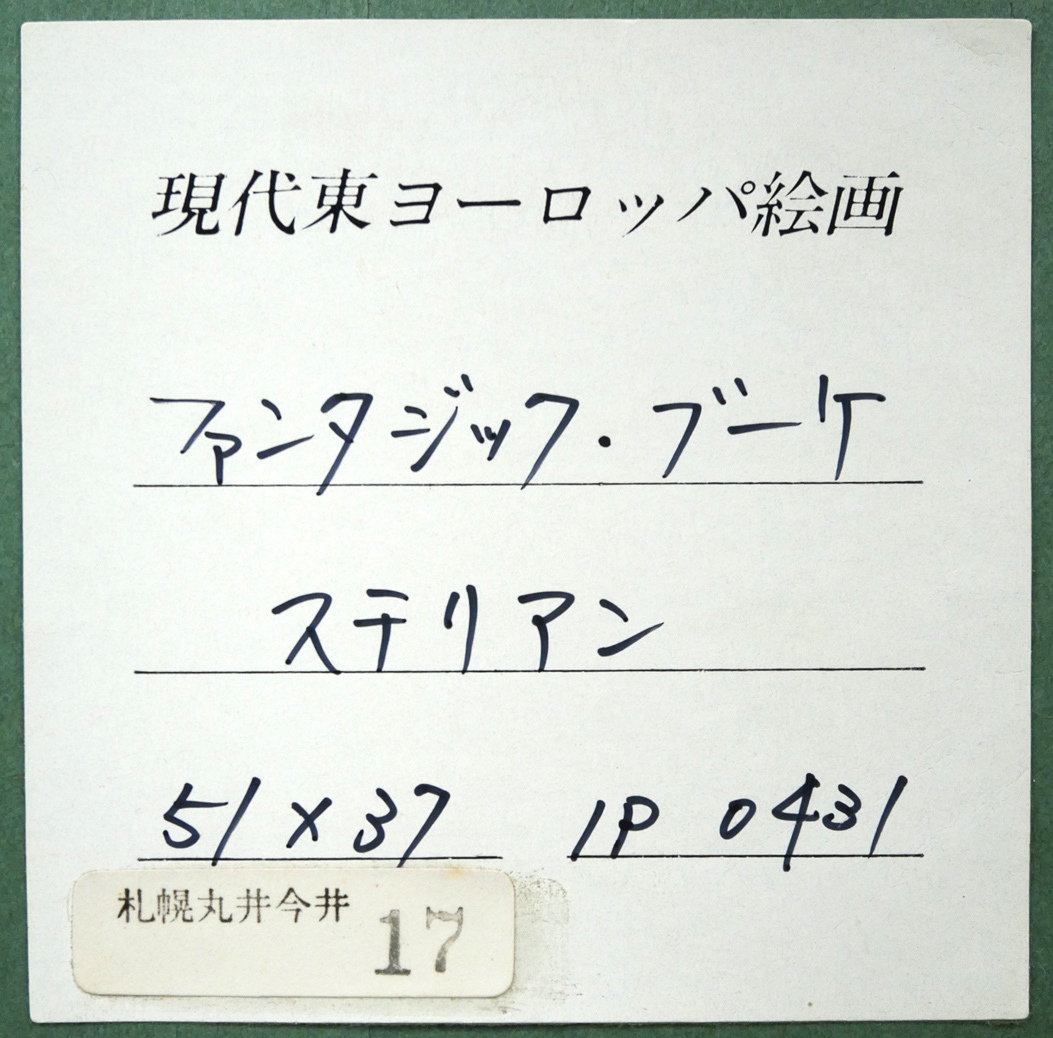 現代東ヨーロッパ絵画
ファンタジック・ブーケ
ステリアン
51×37 IP 0431
札幌丸井今井
17